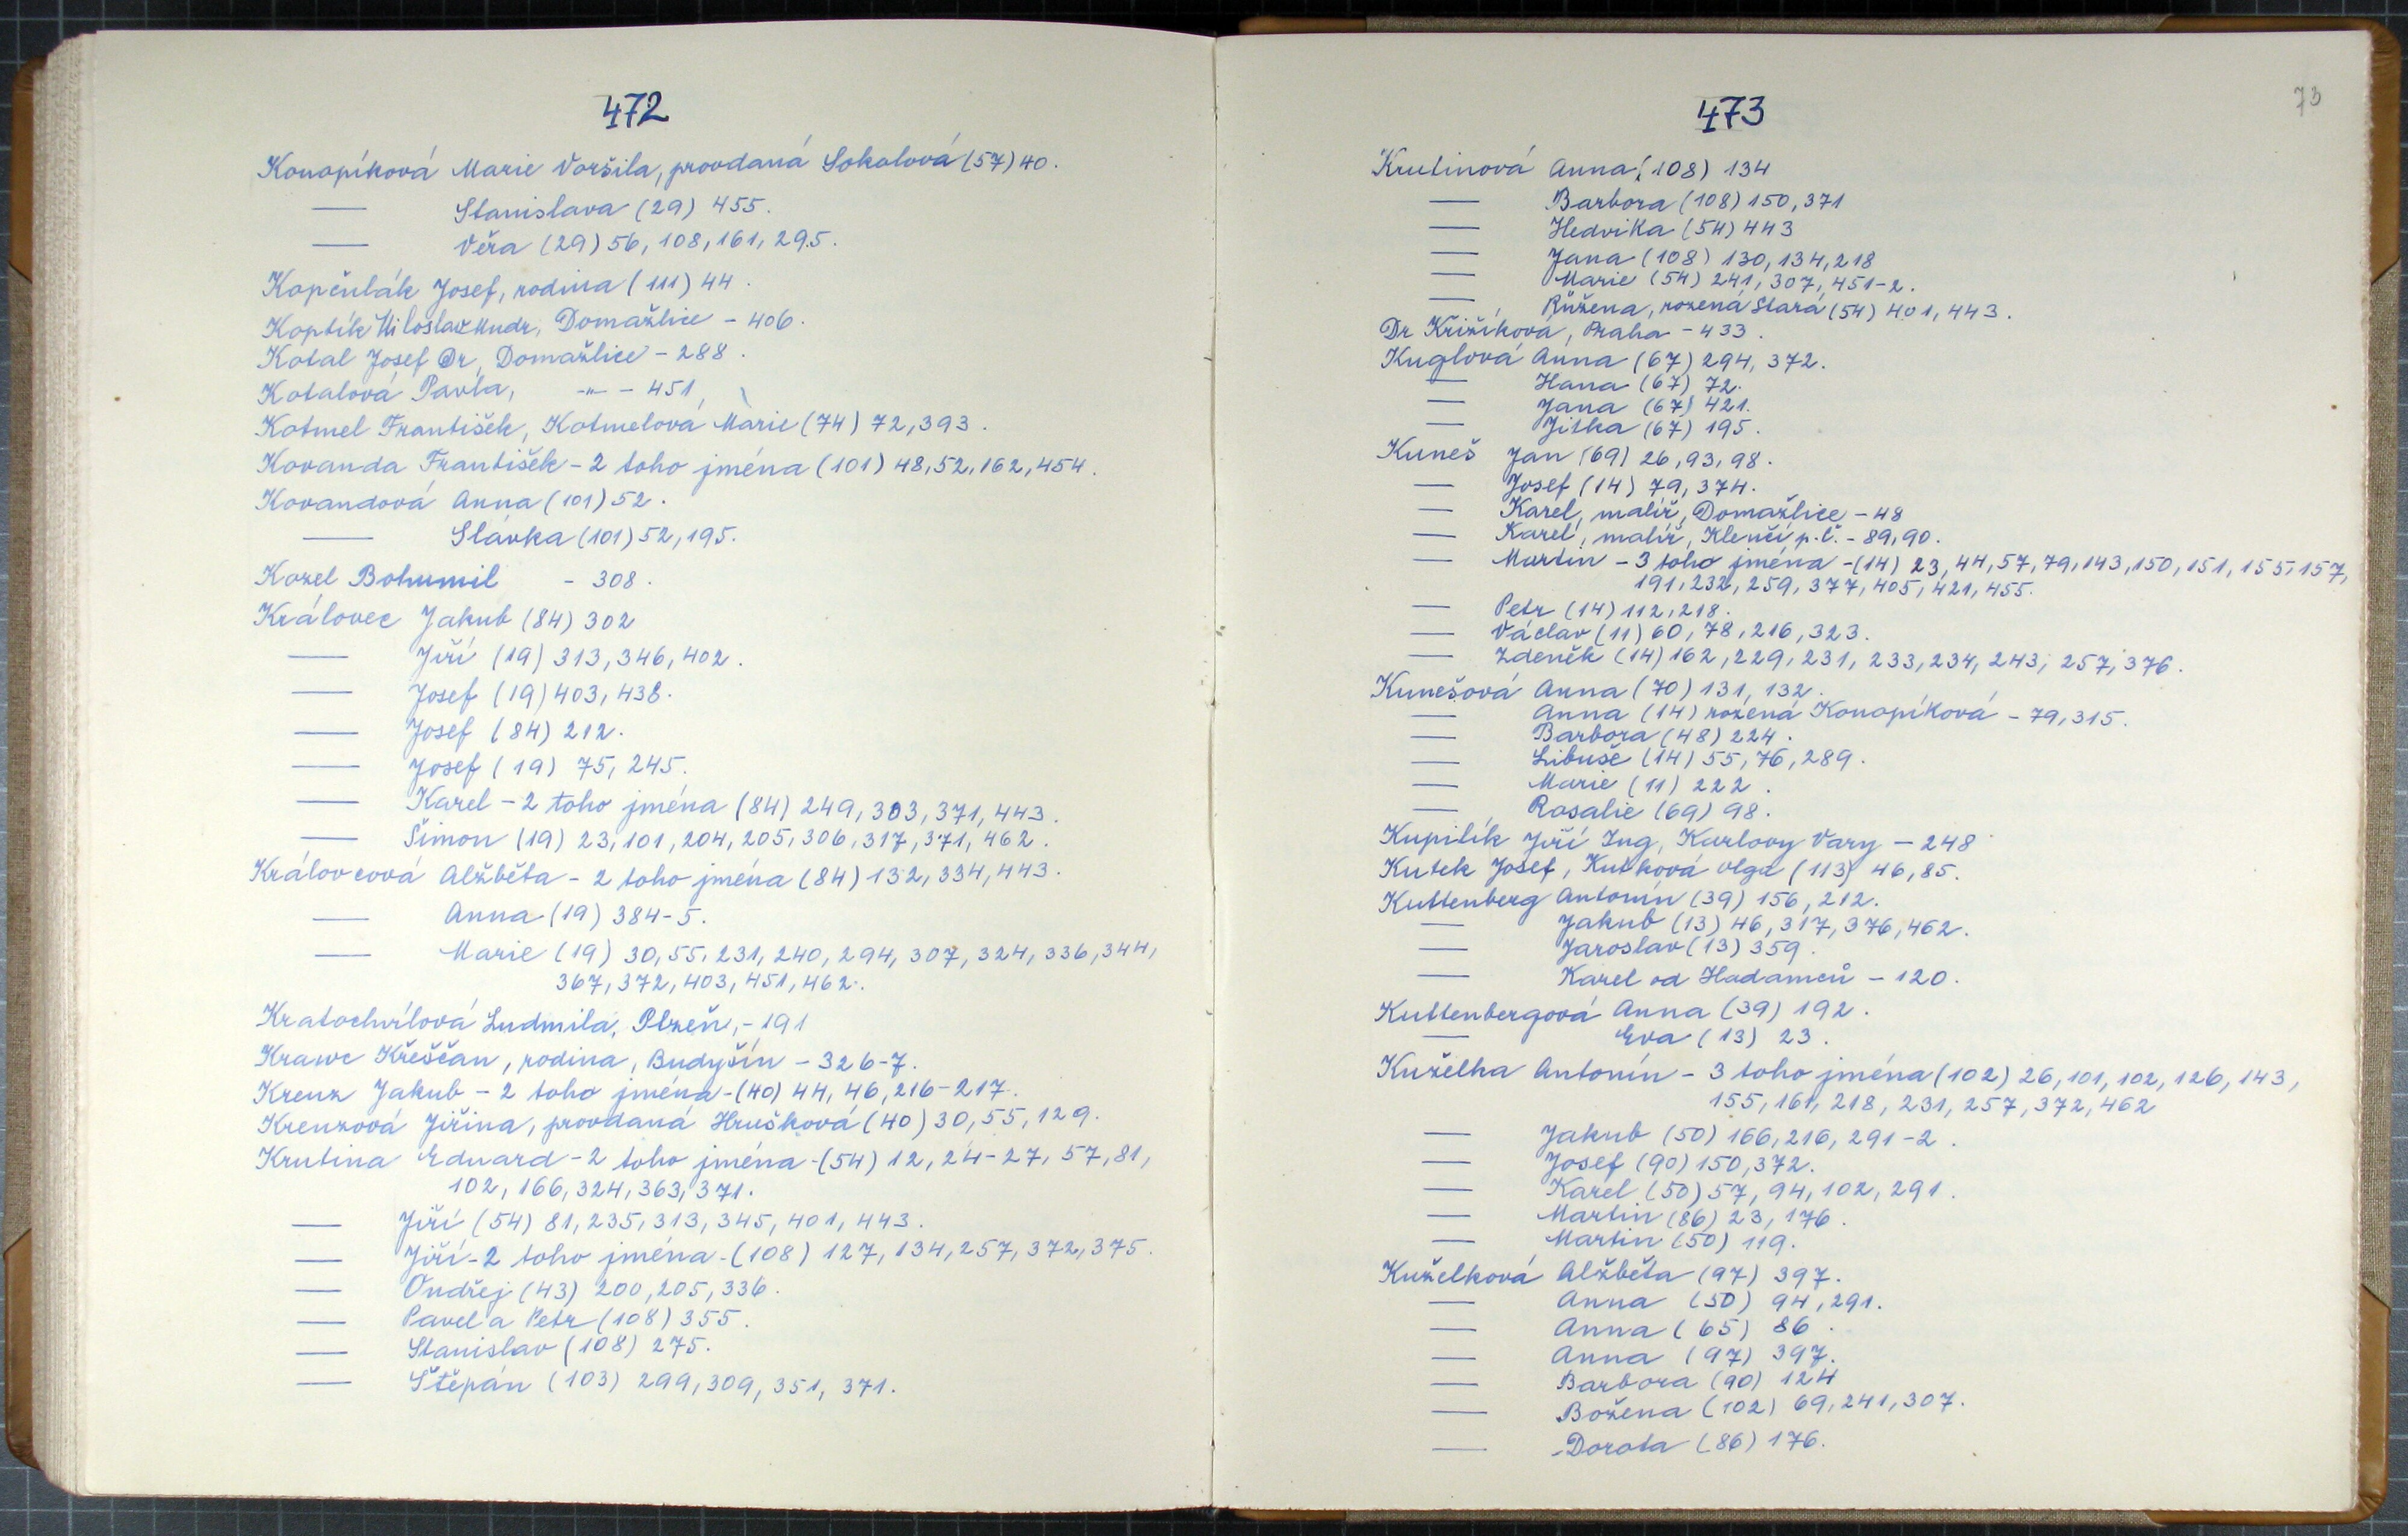 472
Konopíková Marie Voršila, provdaná Sokolová (57) 40.
— Stanislava (29) 455.
— Věra (29) 56, 108, 161, 295.
Kopčulák Josef, rodina (111) 44.
Koptík Miloslav Mudr, Domažlice - 406.
Kotal Josef Dr, Domažlice - 288.
Kotalová Pavla, -"- - 451,
Kotmel František, Kotmelová Marie (74) 72, 393.
Kovanda František - 2 toho jména (101) 48, 52, 162, 454.
Kovandová Anna (101) 52.
— Slávka (101) 52, 195.
Kozel Bohumil - 308.
Královec Jakub (84) 302
— Jiří (19) 313, 346, 402.
— Josef (19) 403, 438.
— Josef (84) 212.
— Josef (19) 75, 245.
— Karel - 2 toho jména (84) 249, 303, 371, 443.
— Šimon (19) 23, 101, 204, 205, 306, 317, 371, 462.
Královcová Alžběta - 2 toho jména (84) 132, 334, 443.
— Anna (19) 384-5.
— Marie (19) 30, 55, 231, 240, 294, 307, 324, 336, 344,
367, 372, 403, 451, 462.
Kratochvílová Ludmila, Plzeň, - 191
Krawc Křešćan, rodina, Budyšín - 326-7.
Krenz Jakub - 2 toho jména - (40) 44, 46, 216-217.
Krenzová Jiřina, provdaná Hrušková (40) 30, 55, 129.
Krutina Eduard - 2 toho jména - (54) 12, 24-27, 57, 81,
102, 166, 324, 363, 371.
— Jiří (54) 81, 235, 313, 345, 401, 443.
— Jiří - 2 toho jména - (108) 127, 134, 257, 372, 375.
— Ondřej (43) 200, 205, 336.
— Pavel a Petr (108) 355.
— Stanislav (108) 275.
— Štěpán (103) 299, 309, 351, 371.
73
473
Krutinová Anna (108) 134
— Barbora (108) 150, 371
— Hedvika (54) 443
— Jana (108) 130, 134, 218
— Marie (54) 241, 307, 451-2.
— Růžena, rozená Stará (54) 401, 443.
Dr Křižíková, Praha - 433.
Kuglová Anna (67) 294, 372.
— Hana (67) 72.
— Jana (67) 421.
— Jitka (67) 195.
Kuneš Jan (69) 26, 93, 98.
— Josef (14) 79, 374.
— Karel, malíř, Domažlice - 48
— Karel, malíř, Klenčí p. Č. - 89, 90.
— Martin - 3 toho jména - (14) 23, 44, 57, 79, 143, 150, 151, 155, 157,
191, 232, 259, 377, 405, 421, 455.
— Petr (14) 112, 218.
— Václav (11) 60, 78, 216, 323.
— Zdeněk (14) 162, 229, 231, 233, 234, 243, 257, 376.
Kunešová Anna (70) 131, 132.
— Anna (14) rozená Konopíková - 79, 315.
— Barbora (48) 224.
— Libuše (14) 55, 76, 289.
— Marie (11) 222.
— Rosalie (69) 98.
Kupilík Jiří Ing, Karlovy Vary - 248
Kutek Josef, Kutková Olga (113) 46, 85.
Kuttenberg Antonín (39) 156, 212.
— Jakub (13) 46, 317, 376, 462.
— Jaroslav (13) 359.
— Karel od Hadamců - 120.
Kuttenbergová Anna (39) 192.
— Eva (13) 23.
Kuželka Antonín - 3 toho jména (102) 26, 101, 102, 126, 143,
155, 161, 218, 231, 257, 372, 462
— Jakub (50) 166, 216, 291-2.
— Josef (90) 150, 372.
— Karel (50) 57, 94, 102, 291.
— Martin (86) 23, 176.
— Martin (50) 119.
Kuželková Alžběta (97) 397.
— Anna (50) 94, 291.
— Anna (65) 86.
— Anna (97) 397.
— Barbora (90) 124
— Božena (102) 69, 241, 307.
— Dorota (86) 176.